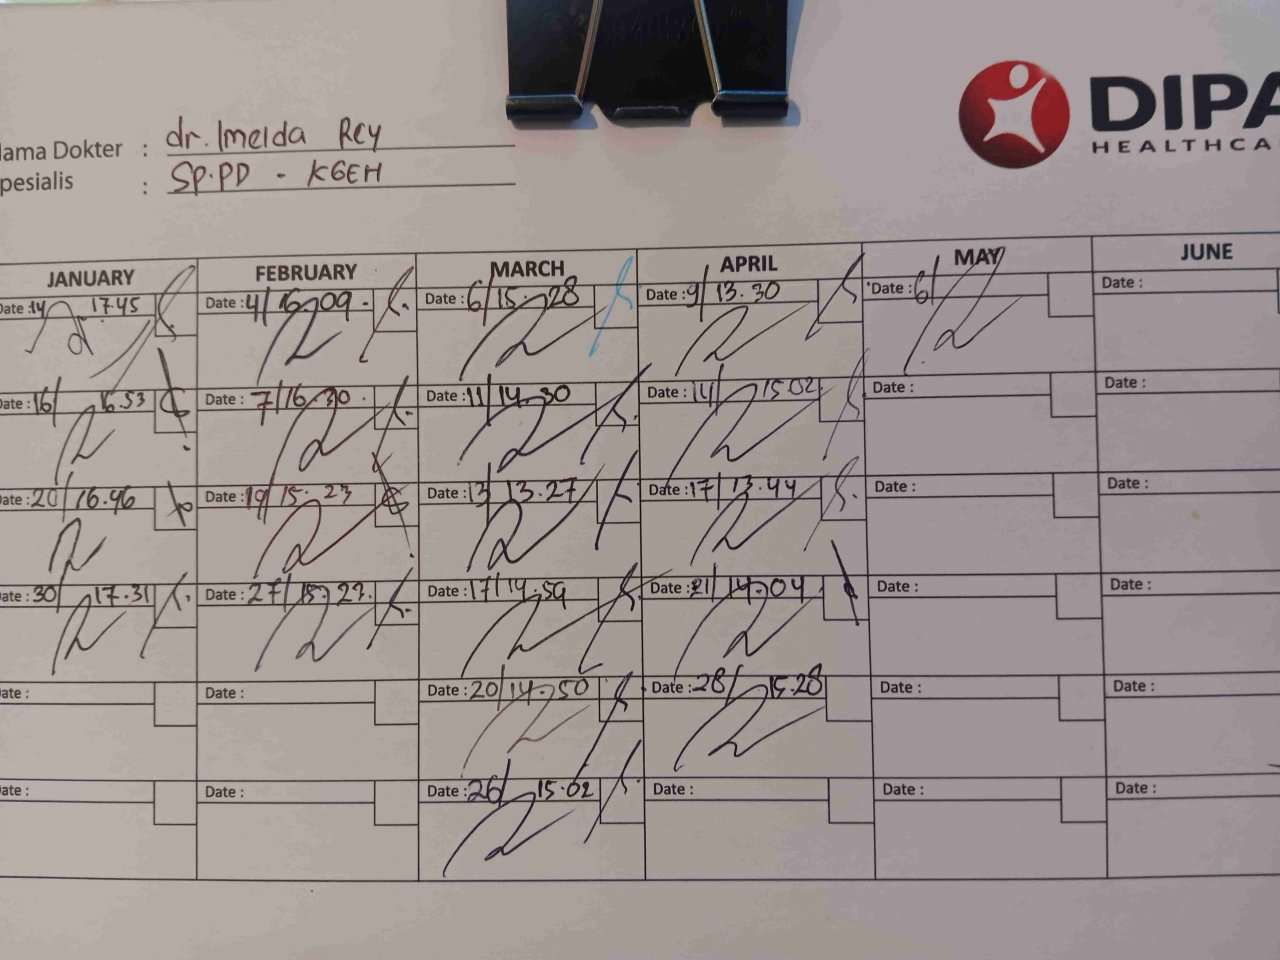 DIPA
HEALTHCA
ama Dokter : dr. Imelda Rey
pesialis : SP.PD - KGEH
JANUARY FEBRUARY MARCH APRIL MAY JUNE
ate :14 17.45 Date :4/16.09 Date :6/15.28 Date :9/13.30 Date :6/ Date :
ate :16/16.53 Date :7/16.30 Date :11/14.30 Date :11/15.02 Date : Date :
ate :20/16.46 Date :19/15.23 Date :13/13.27 Date :17/13.44 Date : Date :
ate :30/17.31 Date :27/15.22 Date :17/14.59 Date :21/14.04 Date : Date :
ate : Date : Date :20/14.50 Date :28/15.28 Date : Date :
ate : Date : Date :26/15.02 Date : Date : Date :